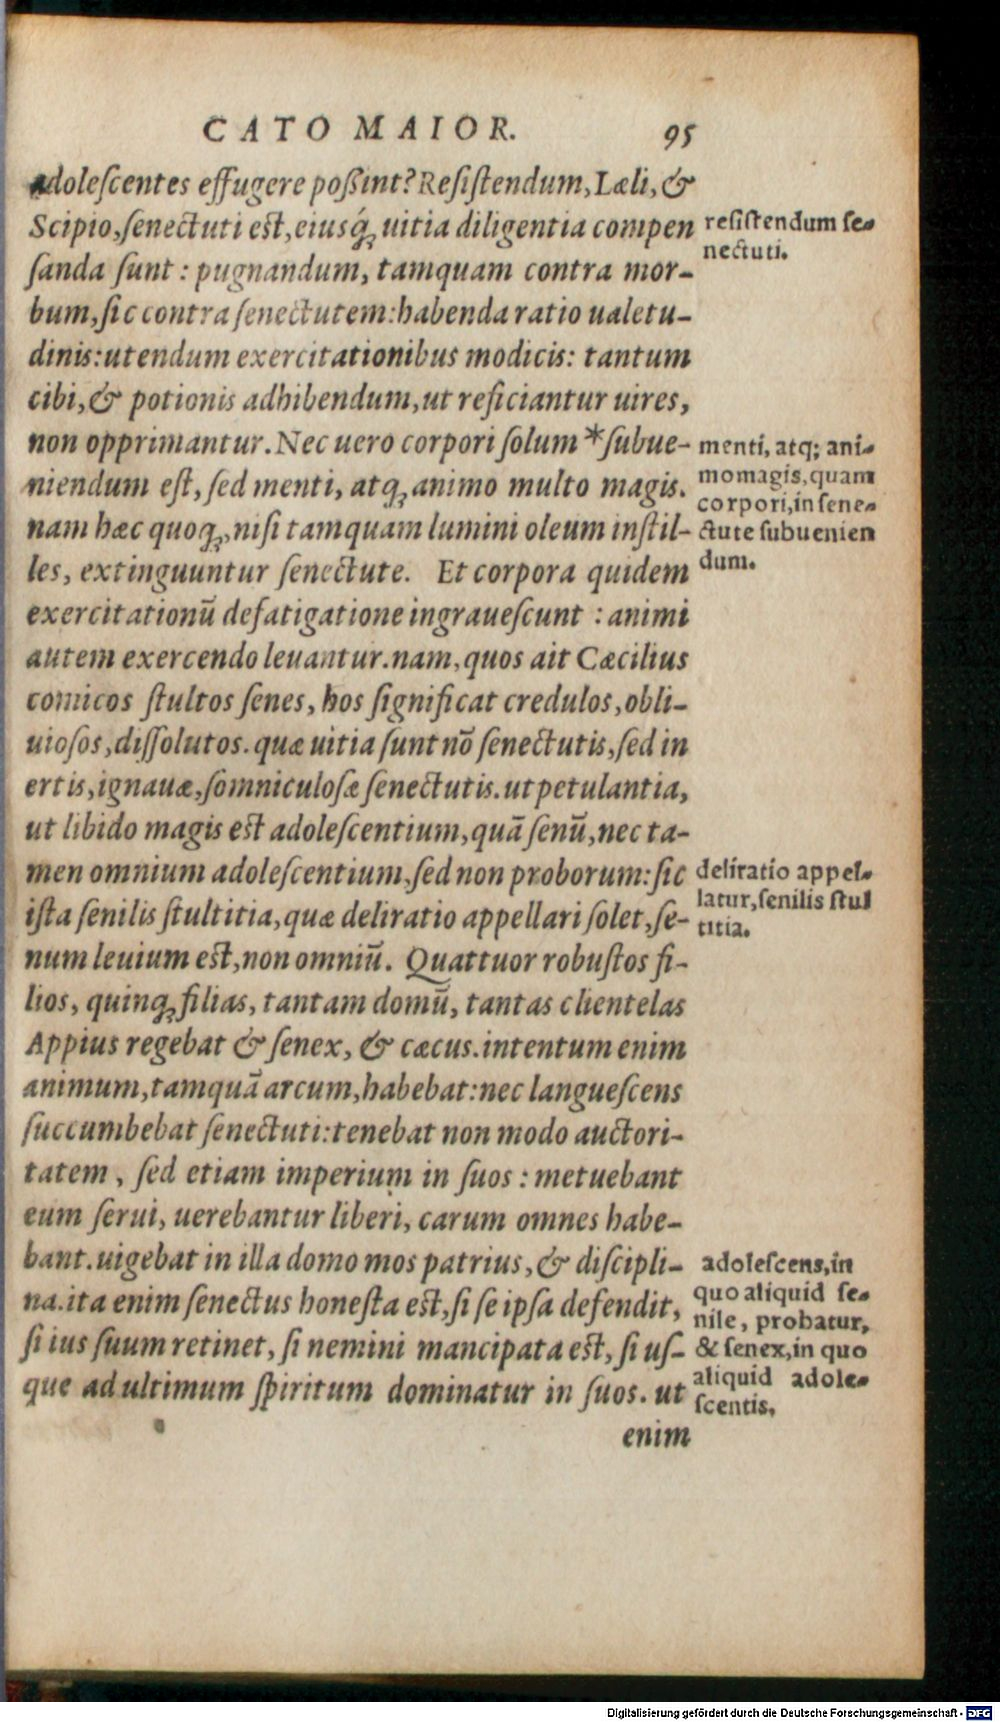 CATO MAIOR. 95
adoleſcentes effugere poßint? Reſiſtendum, Læli, &
Scipio, ſenectuti est, eiusq́; uitia diligentia compen
ſanda ſunt: pugnandum, tamquam contra mor-
bum, ſic contra ſenectutem: habenda ratio ualetu-
dinis: utendum exercitationibus modicis: tantum
cibi, & potionis adhibendum, ut reficiantur uires,
non opprimantur. Nec uero corpori ſolum * ſubue-
niendum eſt, ſed menti, atq; animo multo magis.
nam hæc quoq;, niſi tamquam lumini oleum inſtil-
les, extinguuntur ſenectute. Et corpora quidem
exercitationū defatigatione ingraueſcunt: animi
autem exercendo leuantur. nam, quos ait Cæcilius
comicos ſtultos ſenes, hos ſignificat credulos, obli-
uioſos, diſſolutos. quæ uitia ſunt nō ſenectutis, ſed in
ertis, ignauæ, ſomniculoſæ ſenectutis. ut petulantia,
ut libido magis est adoleſcentium, quā ſenū, nec ta-
men omnium adoleſcentium, ſed non proborum: ſic
iſta ſenilis ſtultitia, quæ deliratio appellari ſolet, ſe-
num leuium est, non omniū. Quattuor robuſtos fi-
lios, quinq; filias, tantam domū, tantas clientelas
Appius regebat & ſenex, & cæcus. intentum enim
animum, tamquā arcum, habebat: nec langueſcens
ſuccumbebat ſenectuti: tenebat non modo auctori-
tatem, ſed etiam imperium in ſuos: metuebant
eum ſerui, uerebantur liberi, carum omnes habe-
bant. uigebat in illa domo mos patrius, & diſcipli-
na. ita enim ſenectus honeſta est, ſi ſe ipſa defendit,
ſi ius ſuum retinet, ſi nemini mancipata est, ſi uſ-
que ad ultimum ſpiritum dominatur in ſuos. ut
enim
reſiſtendum ſe-
nectuti.
menti, atq; ani-
mo magis, quam
corpori, in ſene-
ctute ſubuenien
dum.
deliratio appel-
latur, ſenilis ſtul
titia.
adoleſcens, in
quo aliquid ſe-
nile, probatur,
& ſenex, in quo
aliquid adole-
ſcentis.
Digitalisierung gefördert durch die Deutsche Forschungsgemeinschaft - DFG